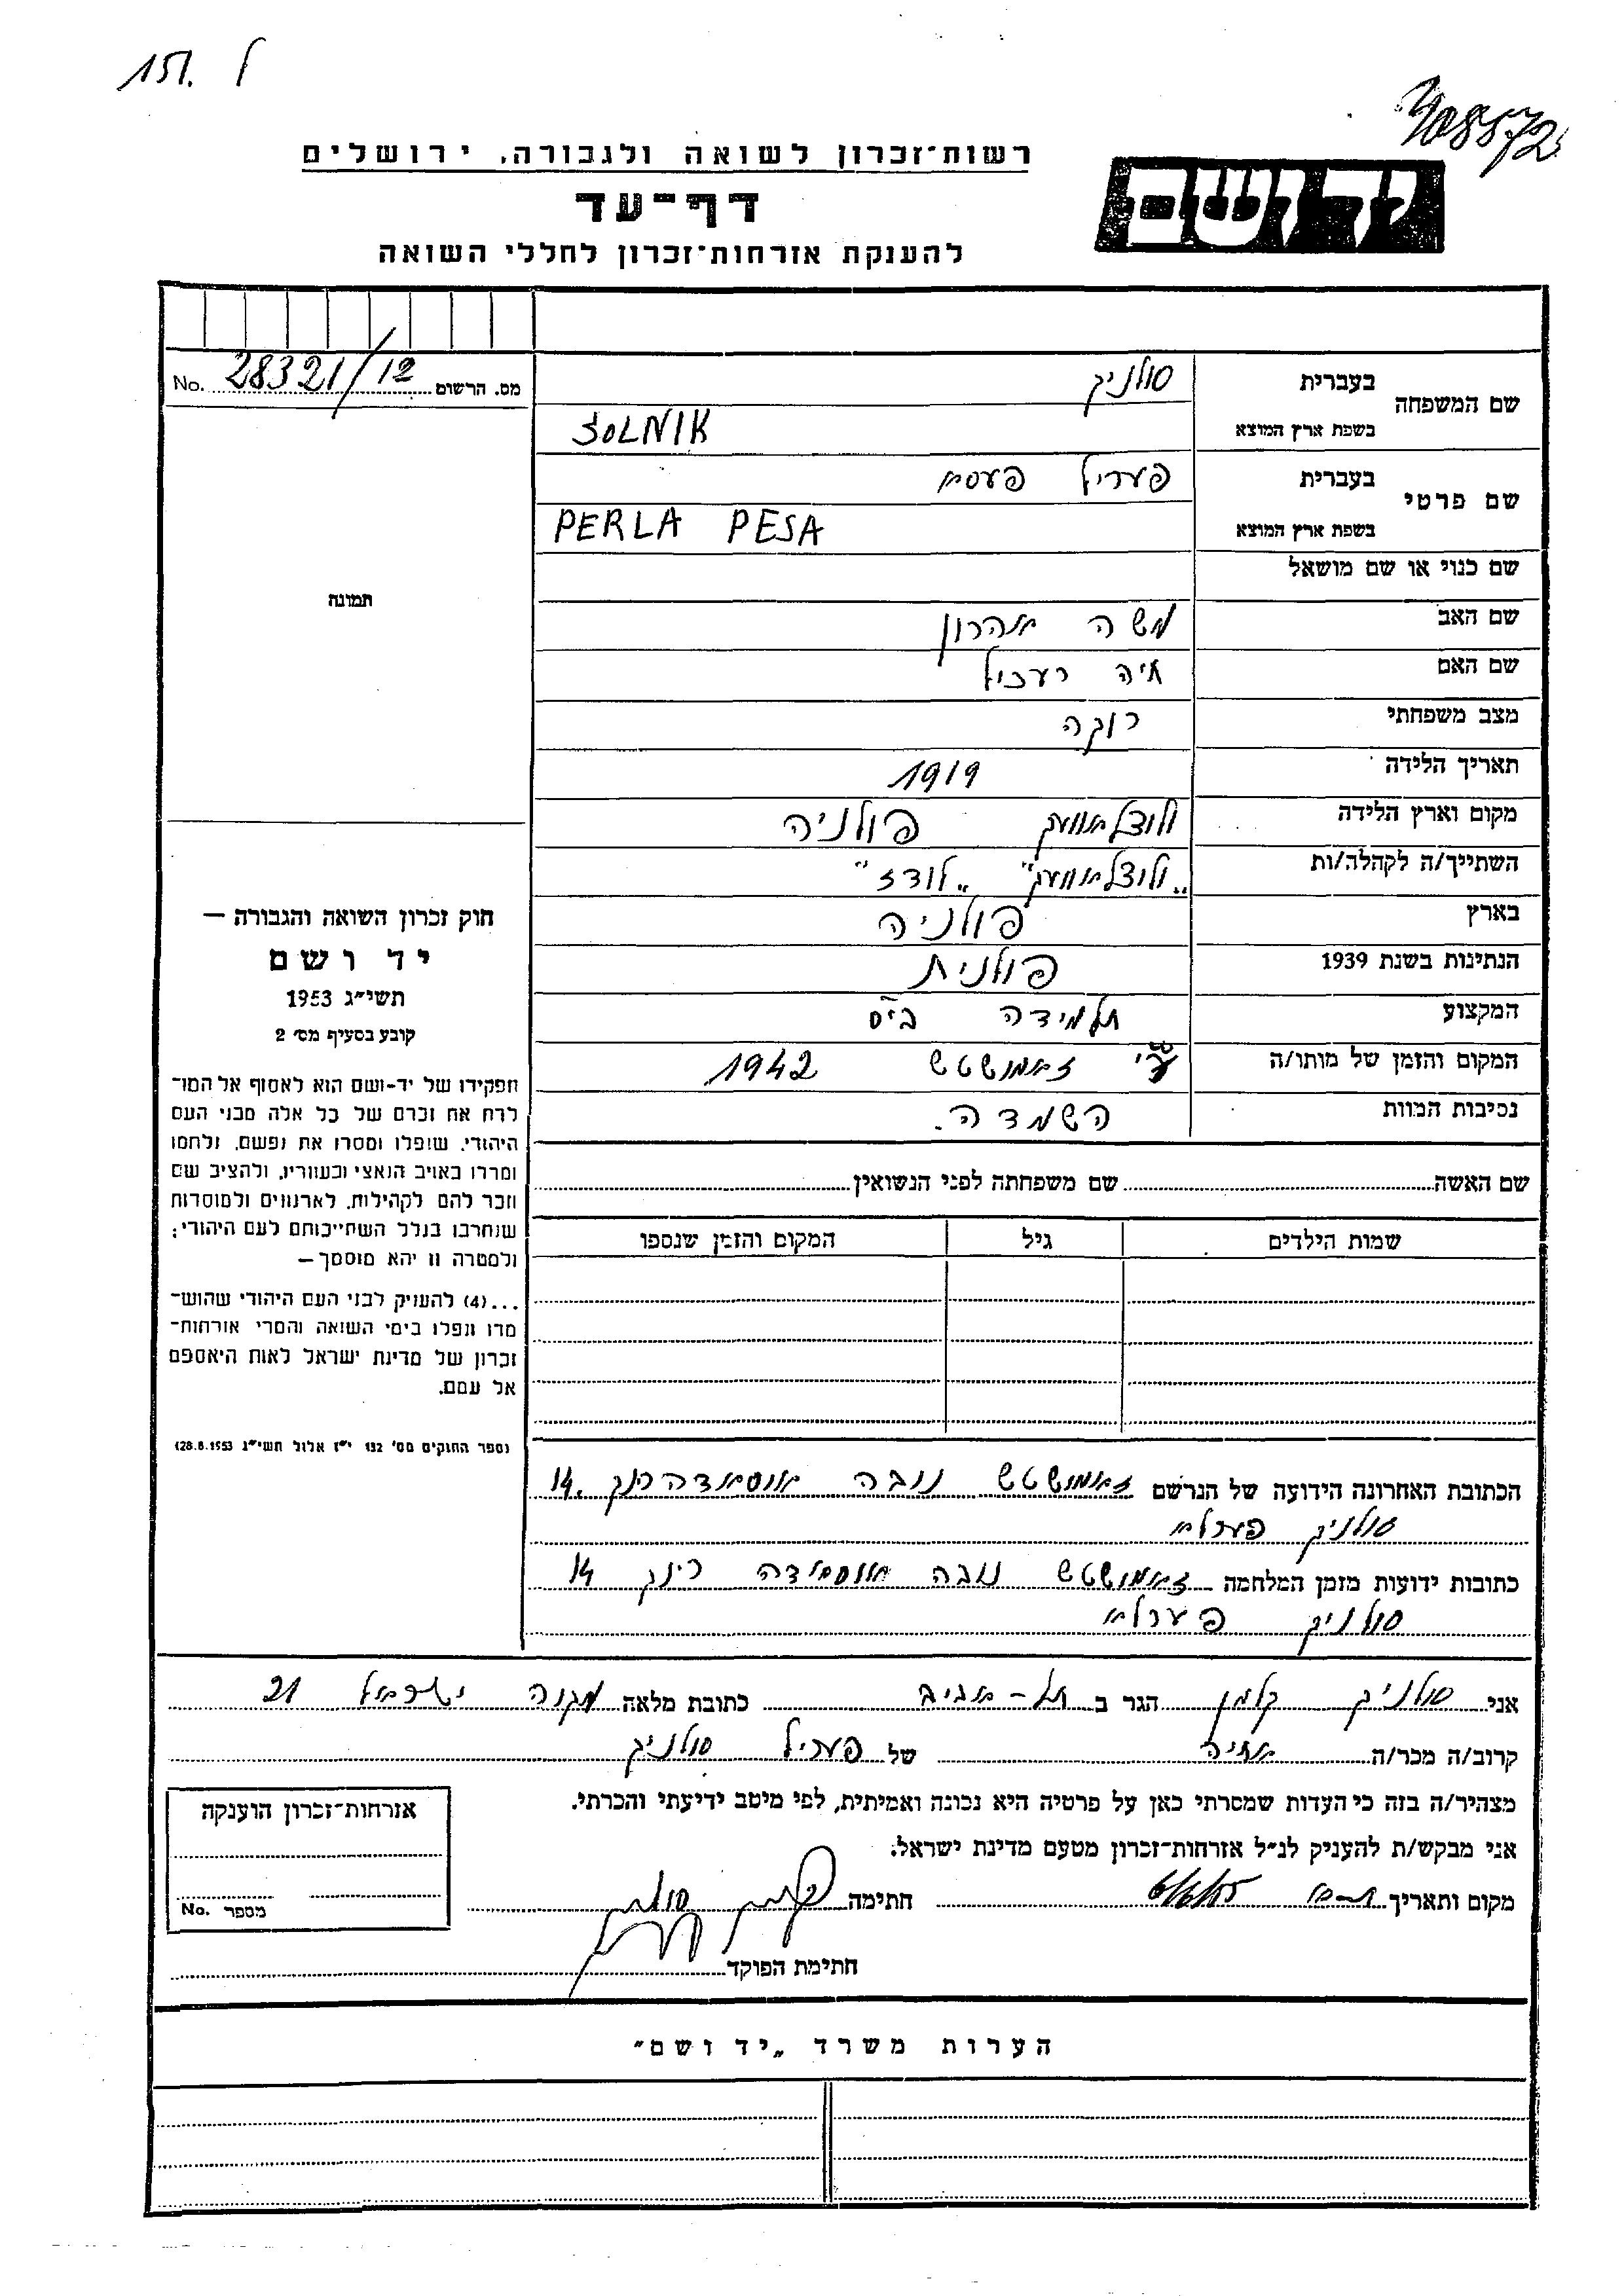 151. ל
408572
רשות־זכרון לשואה ולגבורה, ירושלים
יד ושם
דף־עד
להענקת אזרחות־זכרון לחללי השואה
No. 28321/12 מס. הרשום
שם המשפחה בעברית סולניק
בשפת ארץ המוצא SOLNIK
שם פרטי בעברית פעריל פעסא
בשפת ארץ המוצא PERLA PESA
שם כנוי או שם מושאל
שם האב משה אהרון
שם האם חיה רעכיל
מצב משפחתי רוקה
תאריך הלידה 1919
מקום וארץ הלידה ולוצלאוועק פולניה
השתייך/ה לקהלה/ות „ולוצלאוועק" „לודז"
בארץ פולניה
הנתינות בשנת 1939 פולנית
המקצוע תלמידה בי"ס
המקום והזמן של מותו/ה ע"י זאמושטש 1942
נסיבות המוות השמדה.
תמונה
חוק זכרון השואה והגבורה —
יד ושם
תשי״ג 1953
קובע בסעיף מס׳ 2
תפקידו של יד-ושם הוא לאסוף אל המו־
לדת את זכרם של כל אלה מבני העם
היהודי, שנפלו ומסרו את נפשם, נלחמו
ומרדו באויב הנאצי ובעוזריו, ולהציב שם
וזכר להם לקהילות, לארגונים ולמוסדות
שנחרבו בגלל השתייכותם לעם היהודי;
ולמטרה זו יהא מוסמך —
...(4) להעניק לבני העם היהודי שהוש־
מדו ונפלו בימי השואה והמרי אזרחות־
זכרון של מדינת ישראל לאות היאספם
אל עמם.
(ספר החוקים מס׳ 132 י״ז אלול תשי״ג 28.8.1953)
שם האשה שם משפחתה לפני הנשואין
שמות הילדים גיל המקום והזמן שנספו
הכתובת האחרונה הידועה של הנרשם זאמושטש נובה אוסאדה רינק 14.
סולניק פערלא
כתובות ידועות מזמן המלחמה זאמושטש נובה אוסאדה רינק 14
סולניק פערלא
אני סולניק קלמן הגר ב תל-אביב כתובת מלאה מקוה ישראל 21
קרוב/ה מכר/ה אחיה של פעריל סולניק
מצהיר/ה בזה כי העדות שמסרתי כאן על פרטיה היא נכונה ואמיתית, לפי מיטב ידיעתי והכרתי.
אני מבקש/ת להעניק לנ״ל אזרחות־זכרון מטעם מדינת ישראל.
מקום ותאריך 6/6/55 חתימה קלמן סולניק
חתימת הפוקד
אזרחות־זכרון הוענקה
מספר No.
הערות משרד „יד ושם״